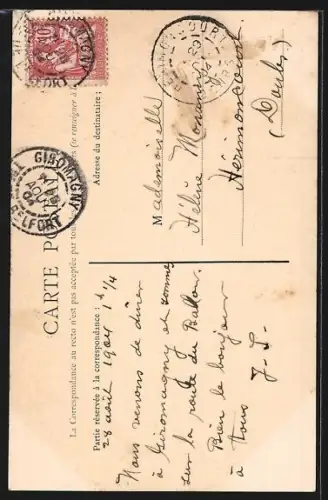 CARTE POSTALE
La Correspondance au recto n'est pas acceptée par tous
(se renseigner à
Partie réservée à la correspondance :
Adresse du destinataire :
28 août 1904 1h 1/4
Nous venons de dîner
à Giromagny et sommes
sur la route du Ballon.
Bien le bonjour
à tous
J. P.
Mademoiselle
Hélène
Hérimoncourt
(Doubs)
GIROMAGNY
BELFORT
10